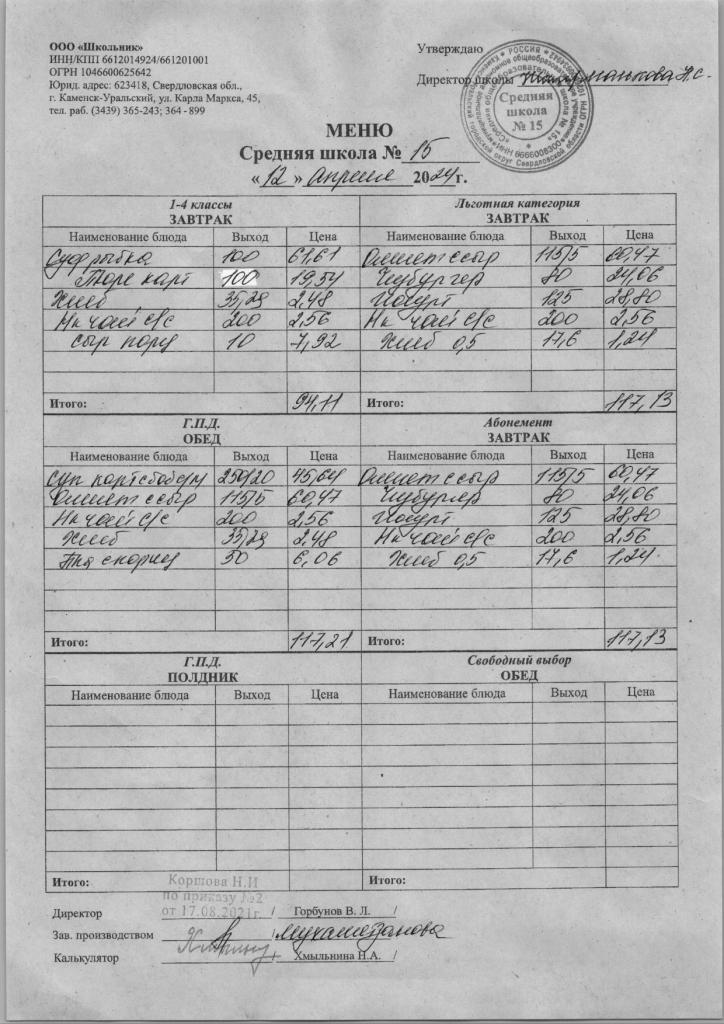 ООО «Школьник»
ИНН/КПП 6612014924/661201001
ОГРН 1046600625642
Юрид. адрес: 623418, Свердловская обл.,
г. Каменск-Уральский, ул. Карла Маркса, 45,
тел. раб. (3439) 365-243; 364 - 899
Утверждаю
Директор школы
РОССИЯ
Средняя
школа
№ 15
МЕНЮ
Средняя школа № 15
« 12 » апреля 2024г.
1-4 классы Льготная категория
ЗАВТРАК ЗАВТРАК
Наименование блюда Выход Цена Наименование блюда Выход Цена
Суф рыбка 100 61,61 Омлет с сыр 115/5 60,47
Пюре карт 100 19,54 Чизбургер 80 24,06
Хлеб 35,29 2,48 Йогурт 125 28,80
Нк чай с/с 200 2,56 Нк чай с/с 200 2,56
Сыр порц 10 7,92 Хлеб 0,5 17,6 1,24
Итого: 94,11 Итого: 117,13
Г.П.Д. Абонемент
ОБЕД ЗАВТРАК
Наименование блюда Выход Цена Наименование блюда Выход Цена
Суп карт с боб 250/20 45,64 Омлет с сыр 115/5 60,47
Омлет с сыр 115/5 60,47 Чизбургер 80 24,06
Нк чай с/с 200 2,56 Йогурт 125 28,80
Хлеб 35,29 2,48 Нк чай с/с 200 2,56
50 6,06 Хлеб 0,5 17,6 1,24
Итого: 117,21 Итого: 117,13
Г.П.Д. Свободный выбор
ПОЛДНИК ОБЕД
Наименование блюда Выход Цена Наименование блюда Выход Цена
Итого: Итого:
Коршова Н.И
по приказу №2
от 17.08.2021г.
Директор / Горбунов В. Л. /
Зав. производством / Мухаметзанова
Калькулятор / Хмыльнина Н.А. /